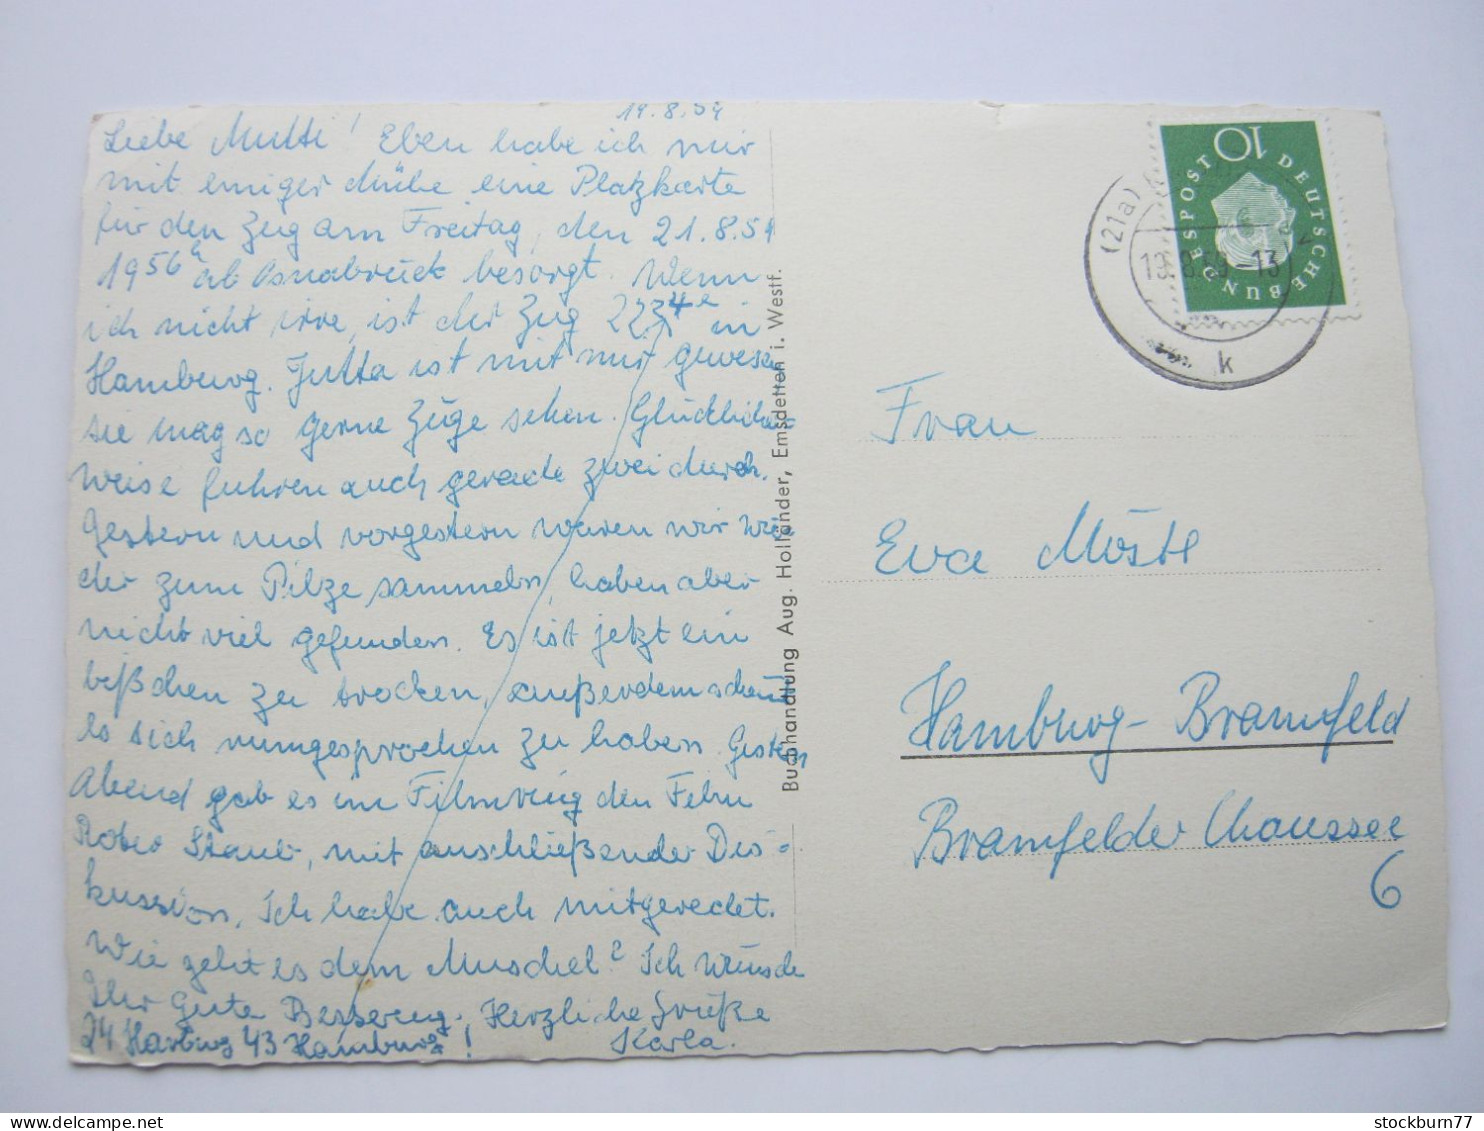 19.8.59
Liebe Mutti! Eben habe ich mir
mit einiger Mühe eine Platzkarte
für den Zug am Freitag, den 21.8.59
19 56 h ab Osnabrück besorgt. Wenn
ich nicht irre, ist der Zug 22 34 in
Hamburg. Jutta ist mit mir gewesen
sie mag so gerne Züge sehen. Glücklicher
weise fuhren auch gerade zwei durch.
Gestern und vorgestern waren wir wie
der zum Pilze sammeln, haben aber
nicht viel gefunden. Es ist jetzt ein
bißchen zu trocken, außerdem scheint
es sich rumgesprochen zu haben. Gestern
Abend gab es im Filmring den Film
Rober Staub, mit anschließender Dis-
kussion. Ich habe auch mitgeredet.
Wie geht es dem Muschel? Ich wünsche
Ihr gute Besserung. Herzliche Grüße
24 Harburg 43 Hamburg! Karla.
Buchhandlung Aug. Holländer, Emsdetten i. Westf.
DEUTSCHE BUNDESPOST
10
(21a)
19.8.59-13
k
Frau
Eva Möstl
Hamburg-Bramfeld
Bramfelder Chaussee
6
stockburn77